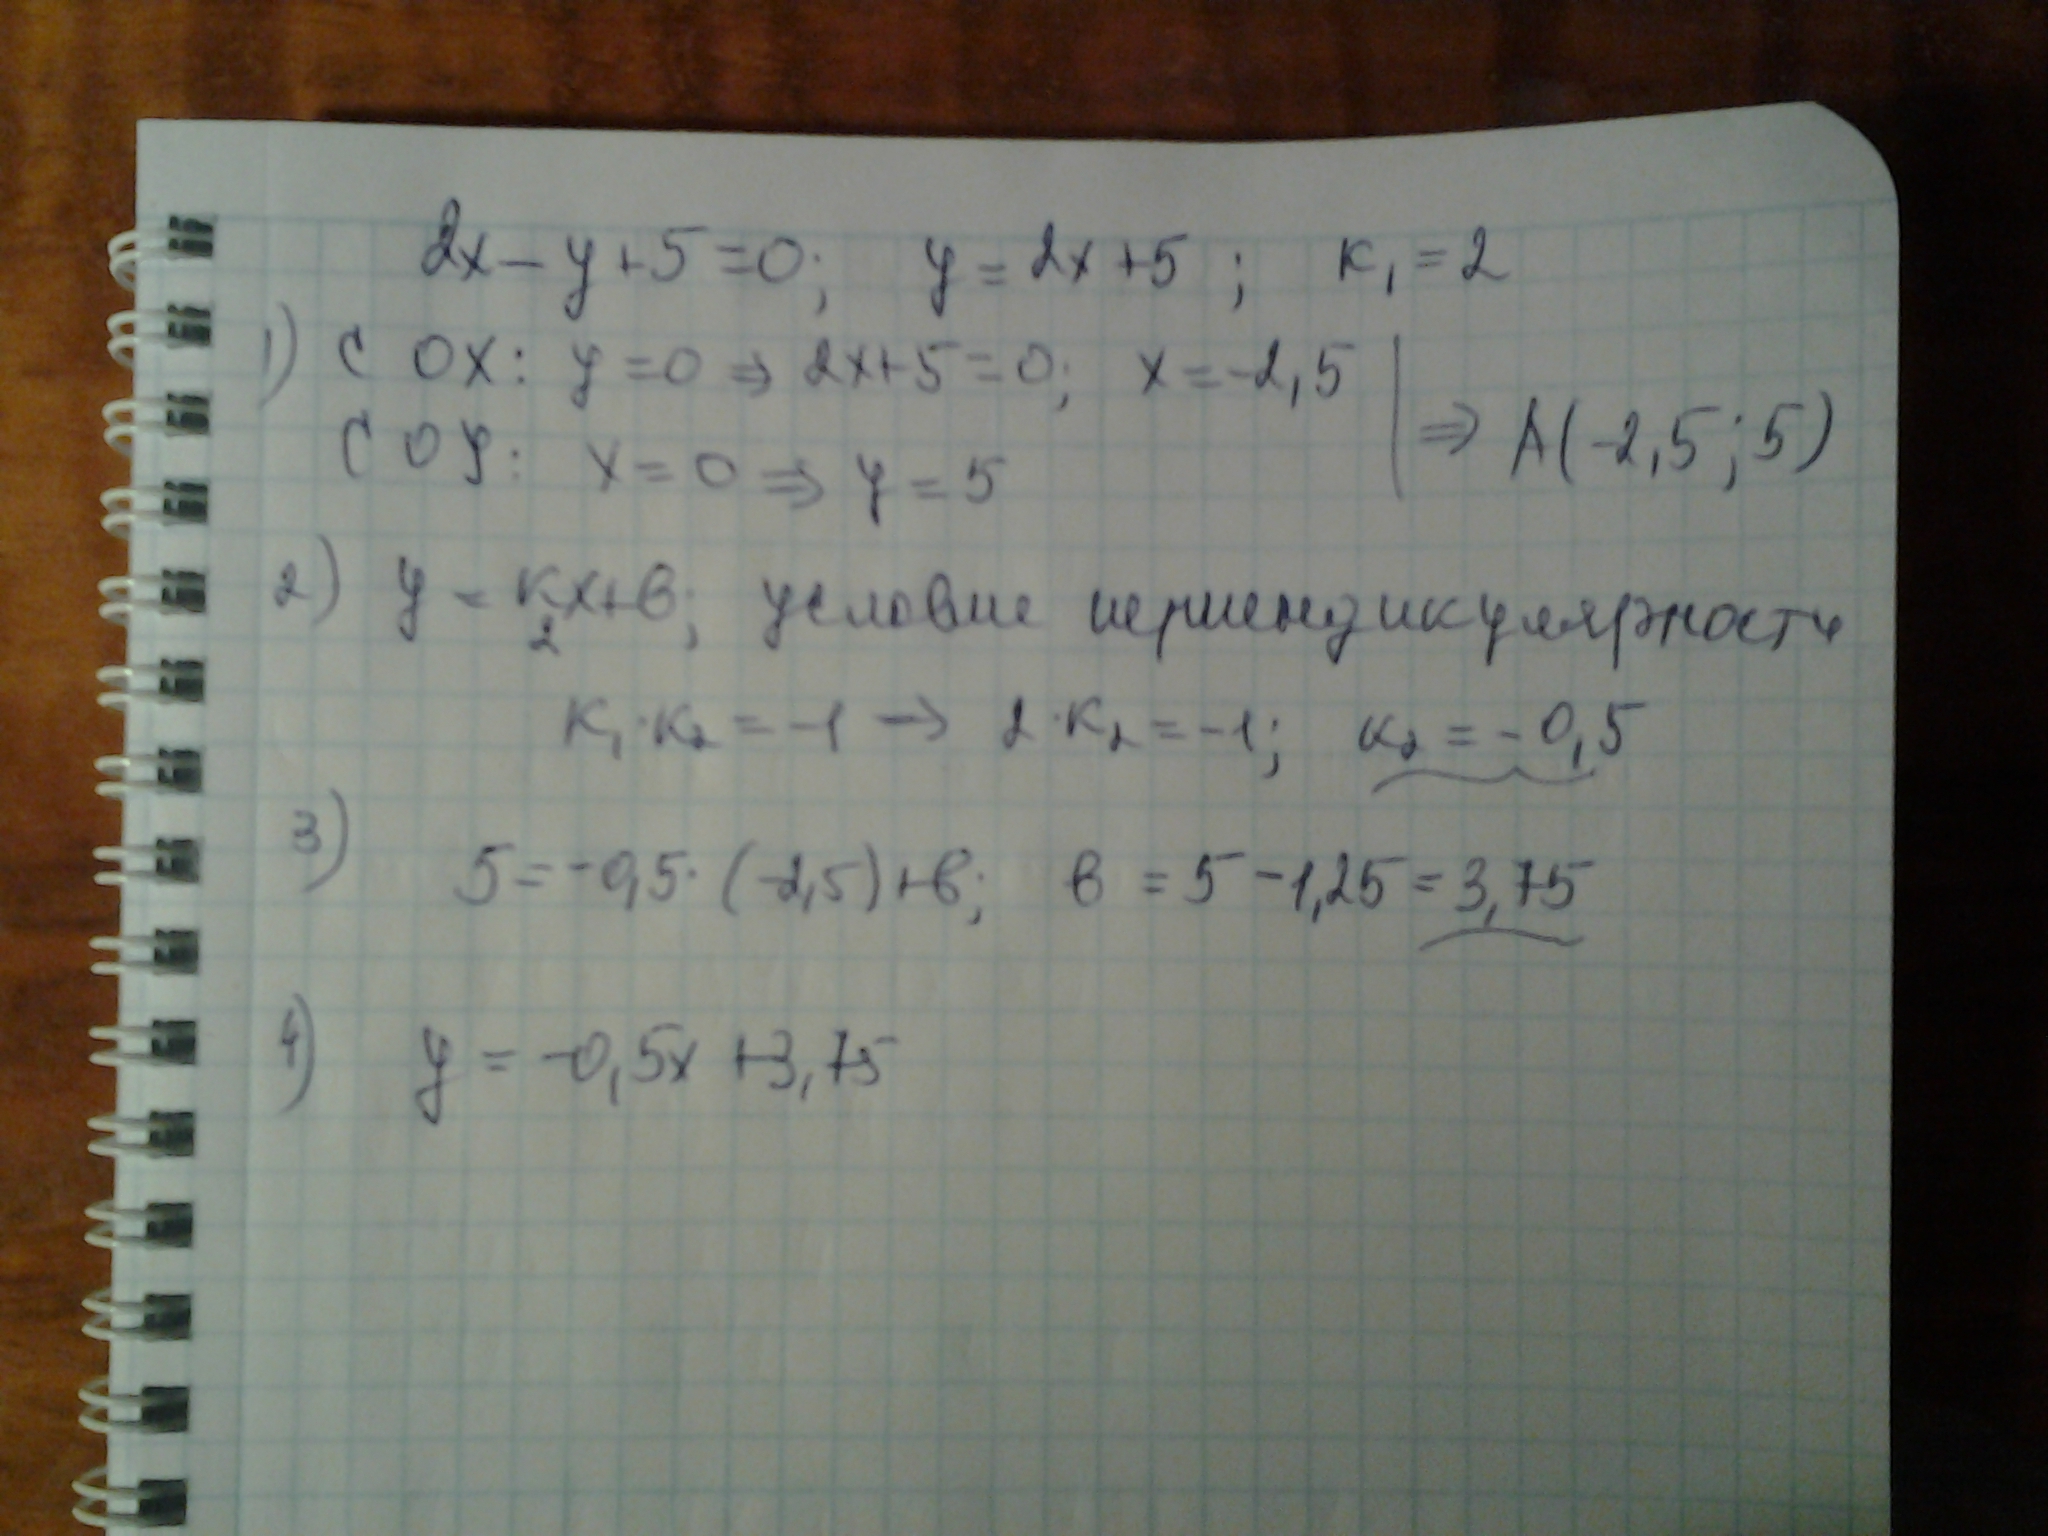 2x – y + 5 = 0; y = 2x + 5; к₁ = 2
1) С OX: y = 0 ⇒ 2x + 5 = 0; x = -2,5
С OY: x = 0 ⇒ y = 5
⇒ A(-2,5; 5)
2) y = к₂x + в; условие перпендикулярности
к₁·к₂ = -1 → 2·к₂ = -1; к₂ = -0,5
3) 5 = -0,5·(-2,5) + в; в = 5 - 1,25 = 3,75
4) y = -0,5x + 3,75